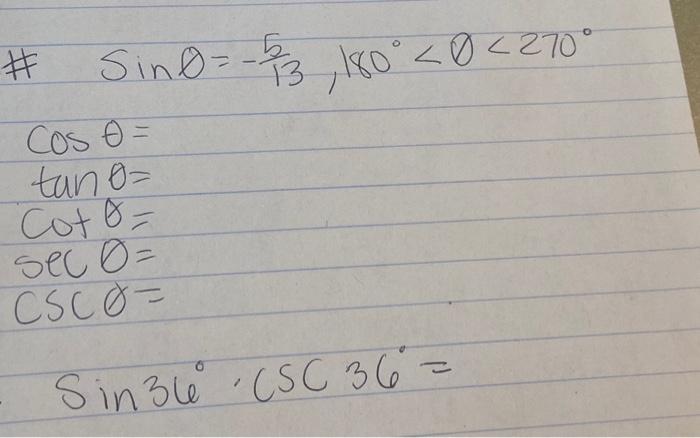 # Sinθ = -5/13, 180° < θ < 270°
Cos θ =
tan θ =
Cot θ =
sec θ =
CSC θ =
Sin 36° · CSC 36° =